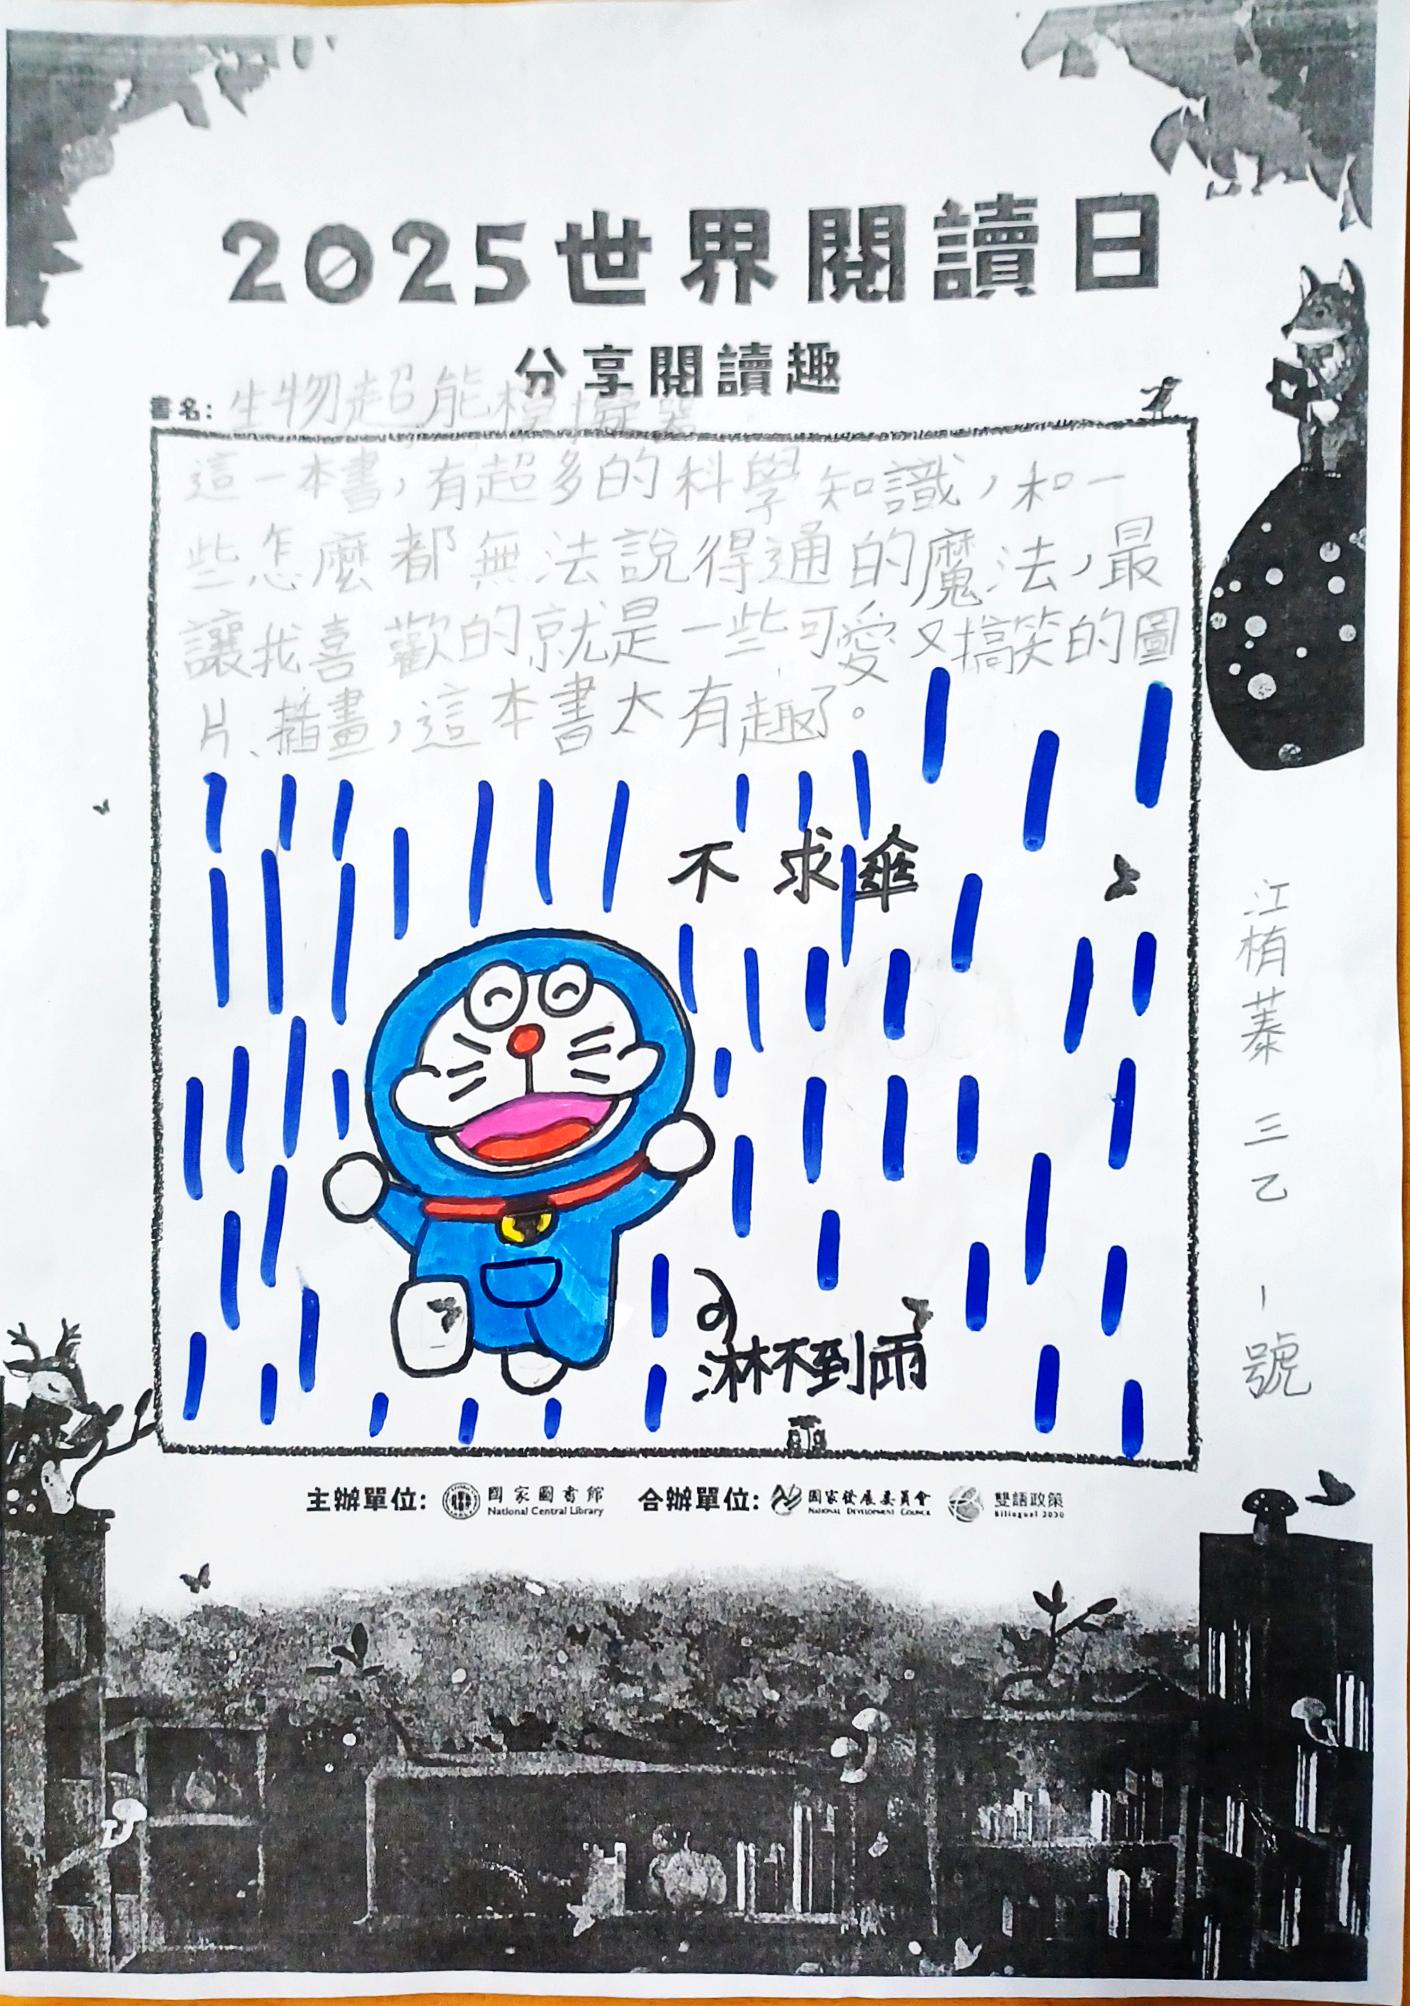 2025世界閱讀日
分享閱讀趣
書名：生物超能模擬器
這一本書，有超多的科學知識，和一
些怎麼都無法說得通的魔法，最
讓我喜歡的就是一些可愛又搞笑的圖
片、插畫，這本書太有趣了。
不求傘
淋不到雨
江栯蓁 三乙 1號
主辦單位： 國家圖書館 National Central Library 合辦單位： 國家發展委員會 National Development Council 雙語政策 Bilingual 2030